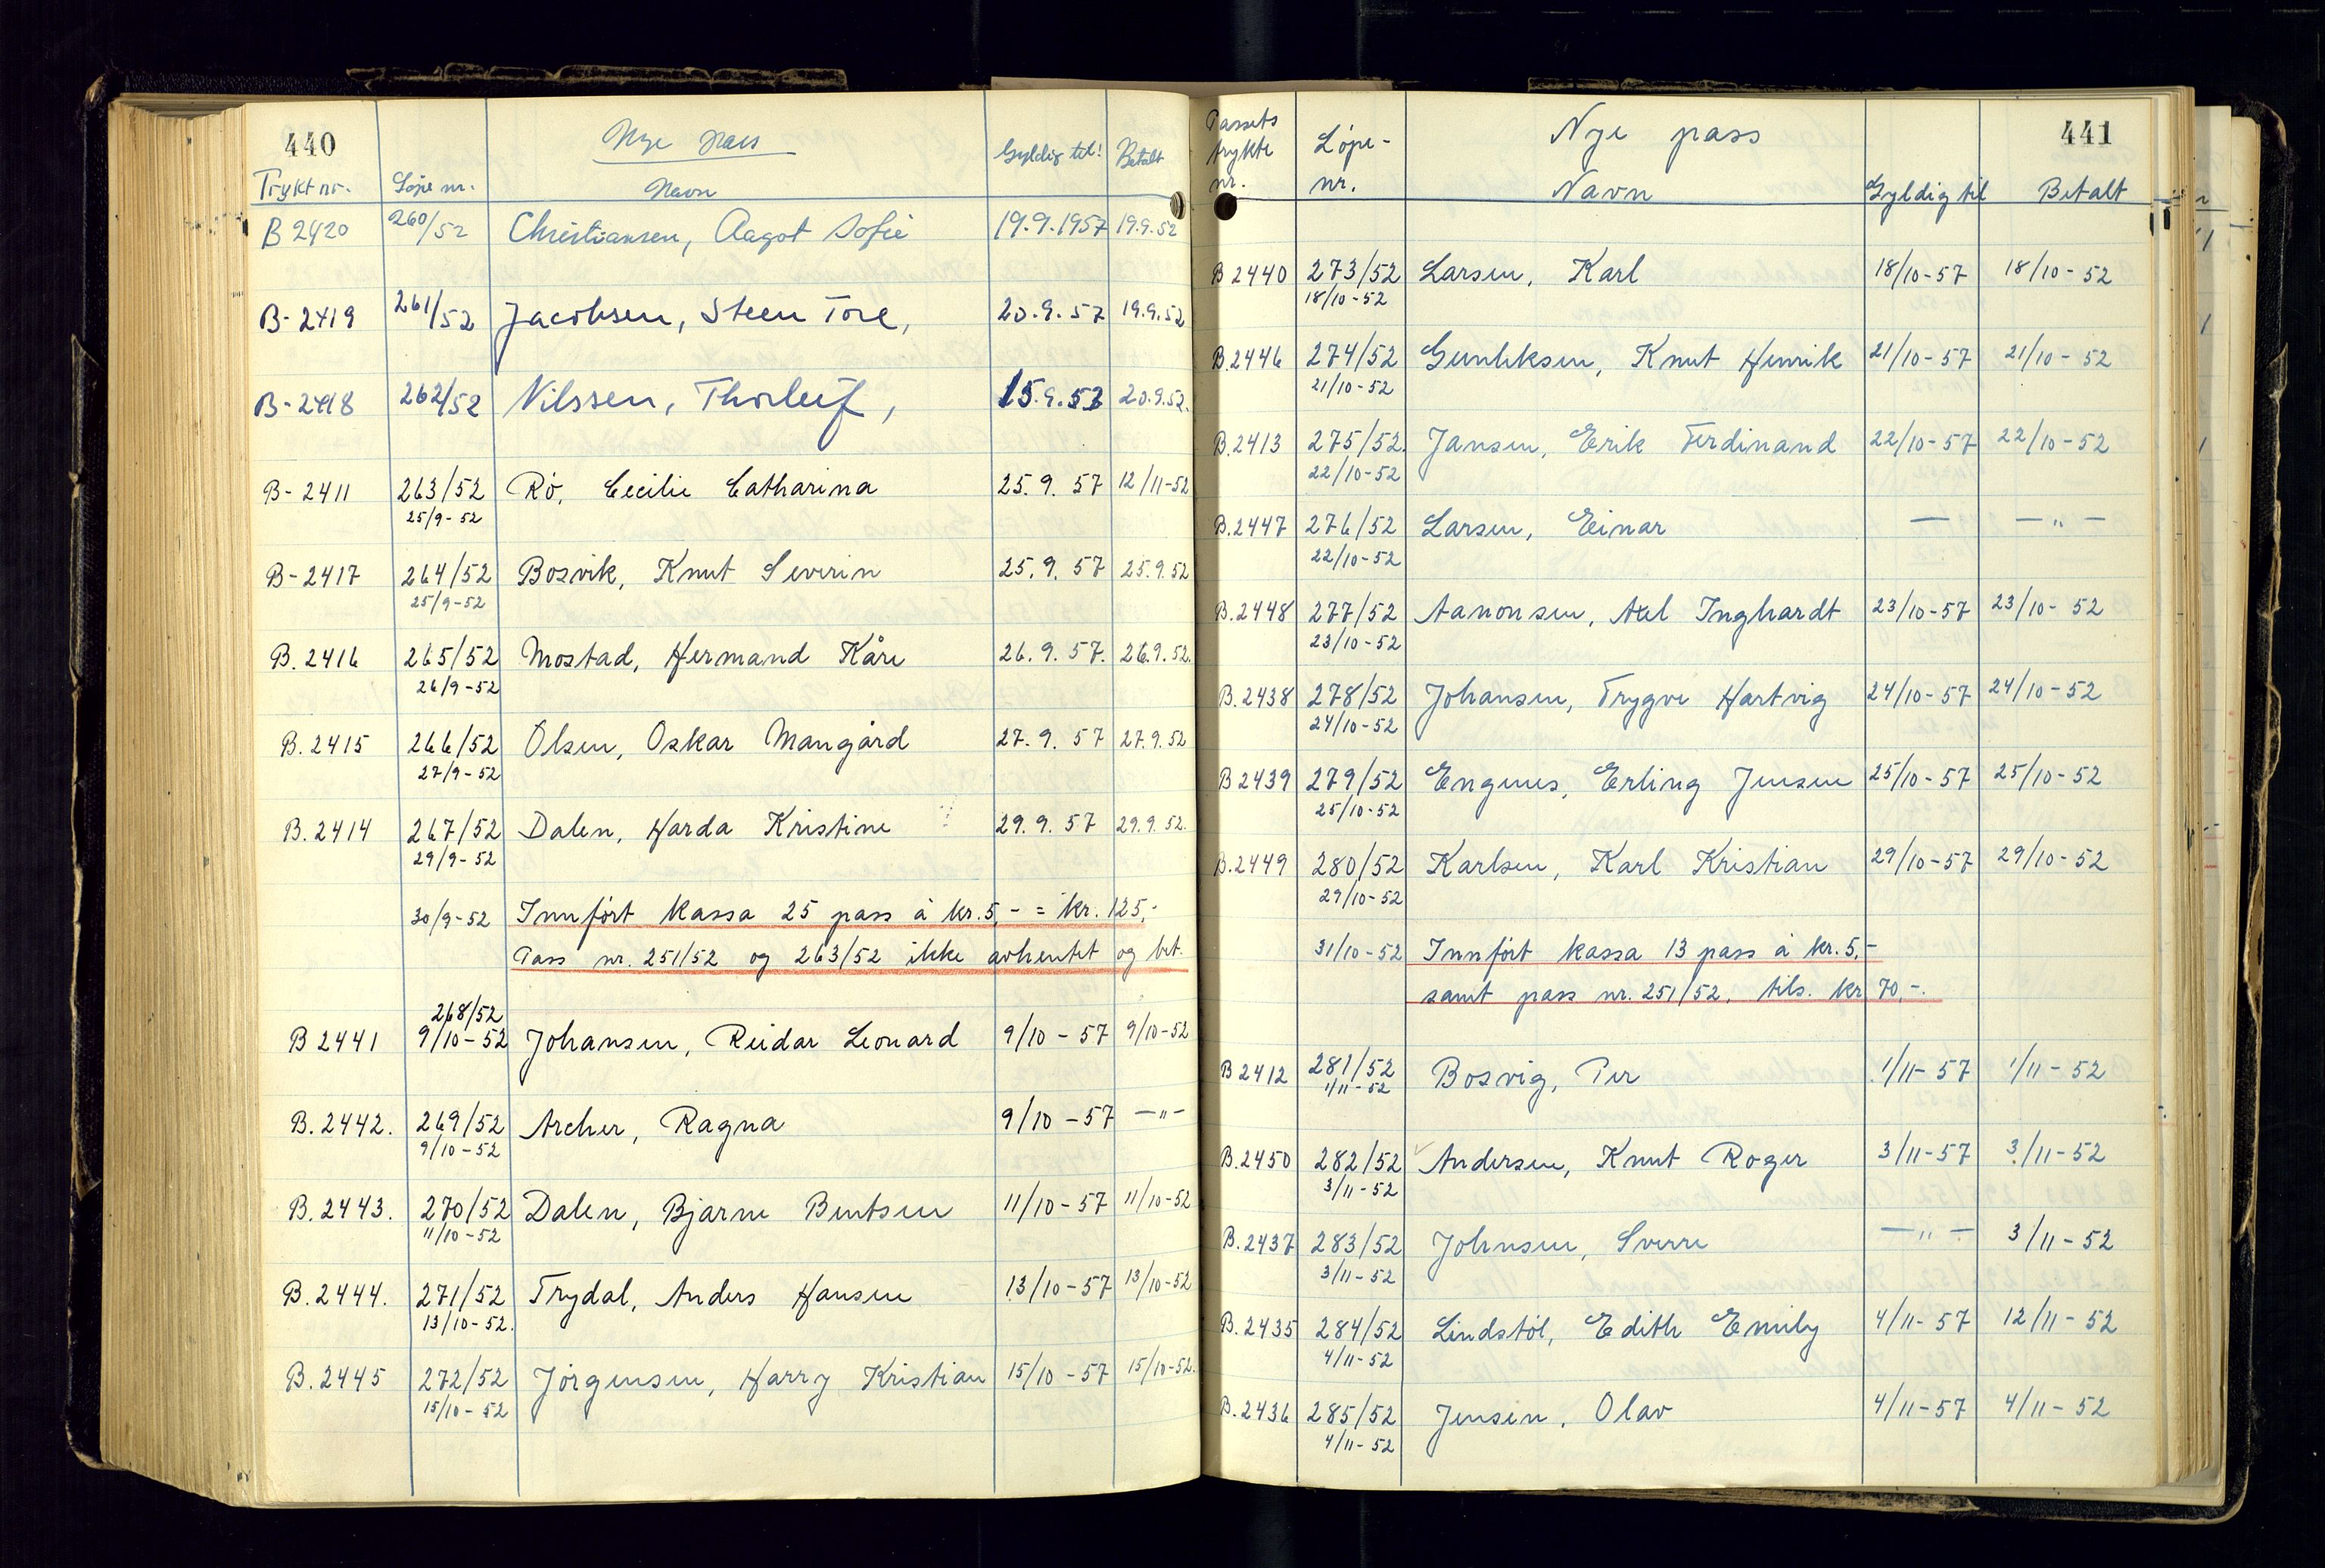 440
Nye Pass
Trykt nr. Løpe nr. Navn Gyldig til! Betalt
B 2420 260/52 Christiansen, Aagot Sofie 19.9.1957 19.9.52
B-2419 261/52 Jacobsen, Steen Tore, 20.9.57 19.9.52
B-2418 262/52 Nilssen, Thorleif, 15.9.53 20.9.52.
B-2411 263/52 Rö, Cecilie Catharina 25.9.57 12/11-52
25/9-52
B-2417 264/52 Bosvik, Knut Severin 25.9.57 25.9.52
25/9-52
B.2416 265/52 Mostad, Hermand Kåre 26.9.57. 26.9.52.
26/9-52
B.2415 266/52 Olsen, Oskar Mangård 27.9.57 27.9.52
27/9-52
B.2414 267/52 Dalen, Harda Kristine 29.9.57 29.9.52.
29/9-52
30/9-52 Innfört kassa 25 pass à kr. 5,- = kr. 125,-
Pass nr. 251/52 og 263/52 ikke avhentet og bet.
268/52
B 2441 9/10-52 Johansen, Reidar Leonard 9/10-57 9/10-52
B.2442. 269/52 Archer, Ragna 9/10-57 -"-
9/10-52
B.2443. 270/52 Dalen, Bjarne Bentsen 11/10-57 11/10-52
11/10-52
B.2444. 271/52 Trydal, Anders Hansen 13/10-57 13/10-52
13/10-52.
B.2445 272/52 Jörgensen, Harry Kristian 15/10-57 15/10-52.
15/10-52
441
Passets trykte nr. Löpe-nr. Nye pass
Navn Gyldig til Betalt
B 2440 273/52 Larsen, Karl 18/10-57 18/10-52
18/10-52
B.2446 274/52 Gunliksen, Knut Henrik 21/10-57 21/10-52
21/10-52
B.2413 275/52. Jansen, Erik Ferdinand 22/10-57 22/10-52
22/10-52
B.2447 276/52 Larsen, Einar — -"-
22/10-52
B.2448 277/52 Aanonsen, Axel Inghardt 23/10-57 23/10-52
23/10-52
B.2438 278/52 Johansen, Trygve Hartvig 24/10-57 24/10-52
24/10-52
B 2439 279/52 Engenes, Erling Jensen 25/10-57 25/10-52
25/10-52
B.2449 280/52 Karlsen, Karl Kristian 29/10-57 29/10-52
29/10-52
31/10-52 Innfört kassa 13 pass à kr. 5,-
samt pass nr. 251/52, tils. kr 70,-.
B 2412 281/52 Bosvig, Per 1/11-57 1/11-52
1/11-52
B.2450 282/52 Andersen, Knut Roger 3/11-57 3/11-52
3/11-52
B.2437 283/52 Johnsen, Sverre -"- 3/11-52
3/11-52
B.2435 284/52 Lindstöl, Edith Emily 4/11-57 12/11-52
4/11-52
B.2436 285/52 Jensen, Olav 4/11-57 4/11-52
4/11-52